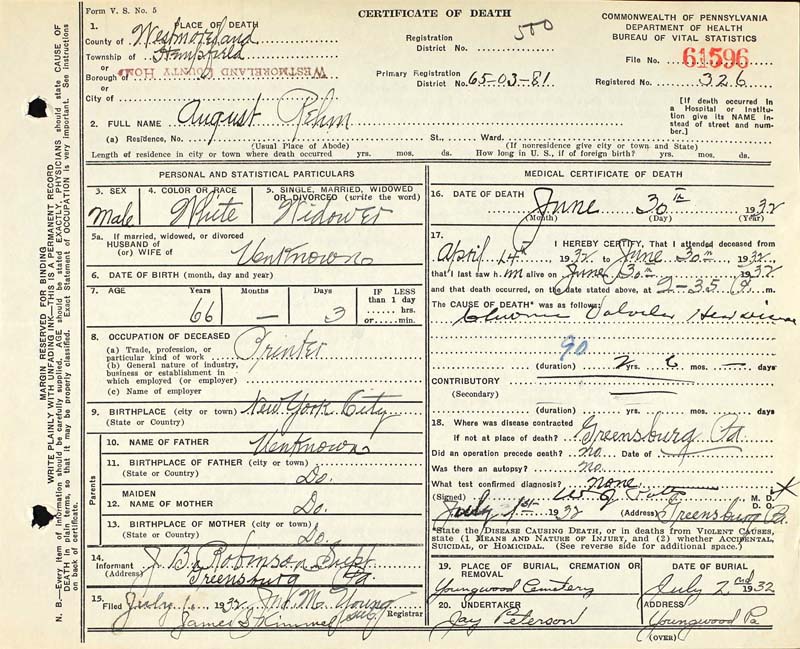 Form V. S. No. 5
CERTIFICATE OF DEATH
COMMONWEALTH OF PENNSYLVANIA
DEPARTMENT OF HEALTH
BUREAU OF VITAL STATISTICS
1. PLACE OF DEATH
County of Westmoreland
Township of Hempfield
or
Borough of WESTMORELAND COUNTY HOME
or
City of
Registration District No. 500
Primary Registration District No. 65-03-81
File No. 61596
Registered No. 326
2. FULL NAME August Rehm
[If death occurred in a Hospital or Institution give its NAME instead of street and number.]
(a) Residence, No. St., Ward.
(Usual Place of Abode) (If nonresidence give city or town and State)
Length of residence in city or town where death occurred yrs. mos. ds. How long in U. S., if of foreign birth? yrs. mos. ds.
PERSONAL AND STATISTICAL PARTICULARS
3. SEX Male
4. COLOR OR RACE White
5. SINGLE, MARRIED, WIDOWED OR DIVORCED (write the word) Widower
5a. If married, widowed, or divorced
HUSBAND of
(or) WIFE of Unknown
6. DATE OF BIRTH (month, day and year)
7. AGE Years 66 Months — Days 3 IF LESS than 1 day hrs. or min.
8. OCCUPATION OF DECEASED
(a) Trade, profession, or particular kind of work Printer
(b) General nature of industry, business or establishment in which employed (or employer)
(c) Name of employer
9. BIRTHPLACE (city or town) New York City
(State or Country)
Parents
10. NAME OF FATHER Unknown
11. BIRTHPLACE OF FATHER (city or town) Do.
(State or Country)
12. MAIDEN NAME OF MOTHER Do.
13. BIRTHPLACE OF MOTHER (city or town) Do.
(State or Country)
14. Informant J. B. Robinson Supt
(Address) Greensburg Pa
15. Filed July 1, 1932 M. Young
James S. Kimmel Registrar
MEDICAL CERTIFICATE OF DEATH
16. DATE OF DEATH June 30th 1932
(Month) (Day) (Year)
17. I HEREBY CERTIFY, That I attended deceased from
April 14th 1932 to June 30th 1932
that I last saw h im alive on June 30th 1932
and that death occurred, on the date stated above, at 2-35 P m.
The CAUSE OF DEATH* was as follows:
Chronic Valvular Heart
90
(duration) 2 yrs. 6 mos. — days
CONTRIBUTORY
(Secondary)
(duration) yrs. mos. days
18. Where was disease contracted
If not at place of death? Greensburg Pa
Did an operation precede death? no Date of
Was there an autopsy? no.
What test confirmed diagnosis? none
(Signed) W. J. Potts M. D. D. O.
July 1st 1932 (Address) Greensburg Pa.
*State the DISEASE CAUSING DEATH, or in deaths from VIOLENT CAUSES, state (1 MEANS AND NATURE OF INJURY, and (2) whether ACCIDENTAL, SUICIDAL, or HOMICIDAL. (See reverse side for additional space.)
19. PLACE OF BURIAL, CREMATION OR REMOVAL
Youngwood Cemetery
DATE OF BURIAL
July 2nd 1932
20. UNDERTAKER
Jay Peterson
ADDRESS
Youngwood Pa
(OVER)
MARGIN RESERVED FOR BINDING
WRITE PLAINLY WITH UNFADING INK—THIS IS A PERMANENT RECORD
N. B.—Every item of information should be carefully supplied. AGE should be stated EXACTLY. PHYSICIANS should state CAUSE OF DEATH in plain terms, so that it may be properly classified. Exact Statement of OCCUPATION is very important. See instructions on back of certificate.